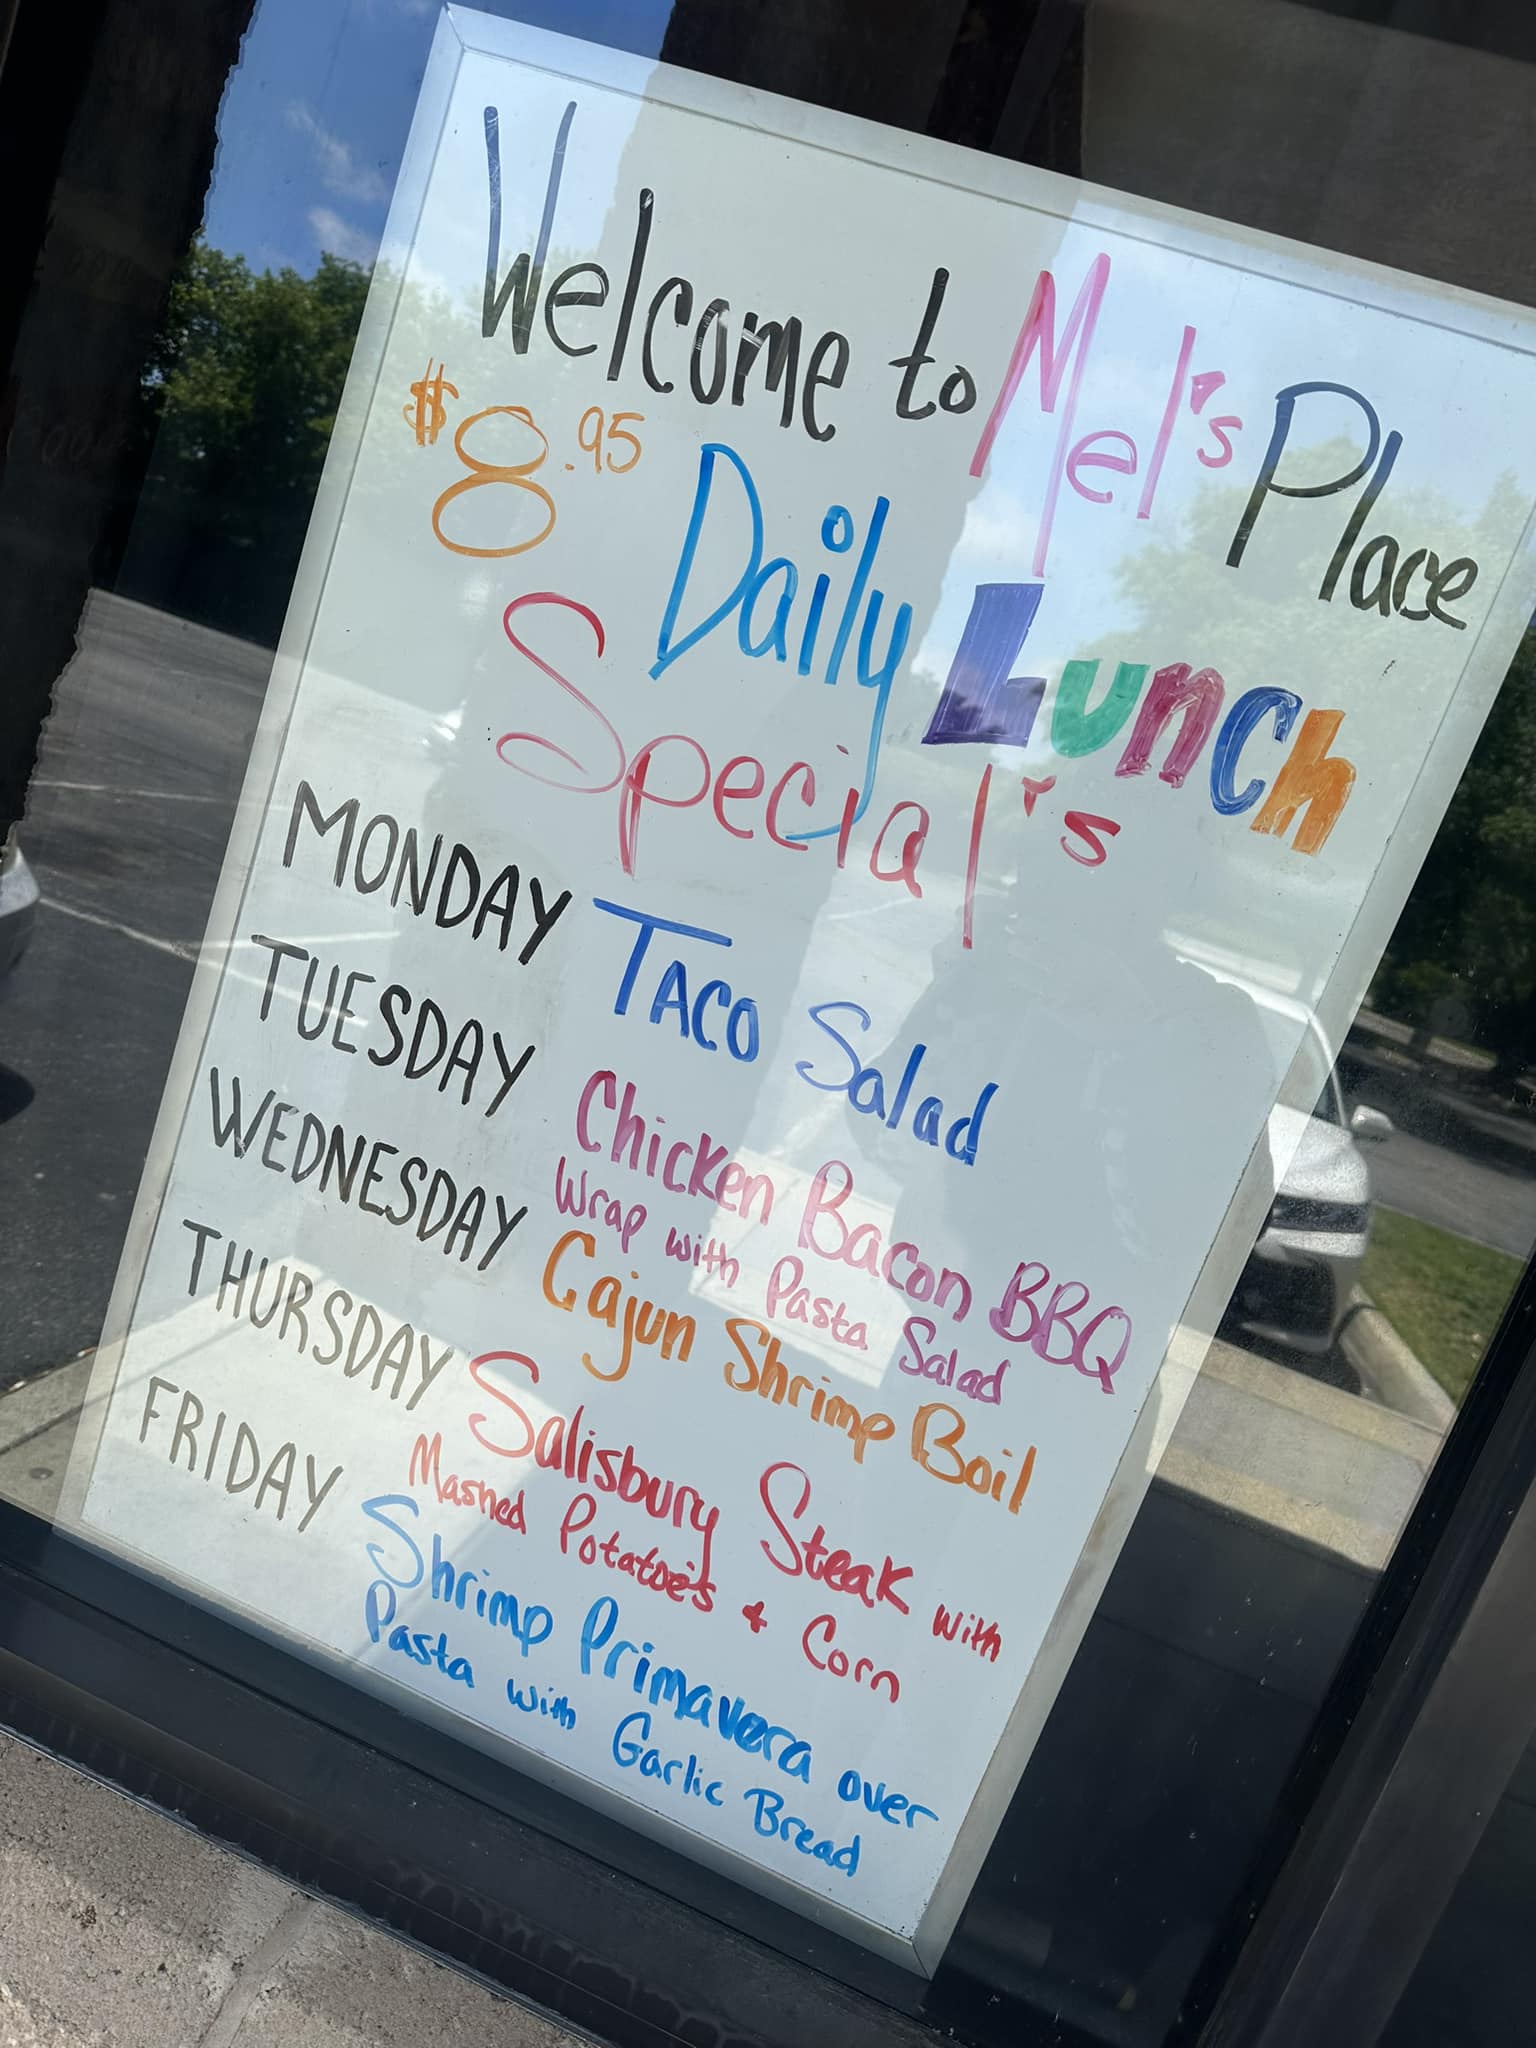 Welcome to Mel's Place
$8.95 Daily Lunch
Special's
MONDAY TACO Salad
TUESDAY Chicken Bacon BBQ
Wrap with Pasta Salad
WEDNESDAY Cajun Shrimp Boil
THURSDAY Salisbury Steak with
Mashed Potatoe's & Corn
FRIDAY Shrimp Primavera over
Pasta with Garlic Bread